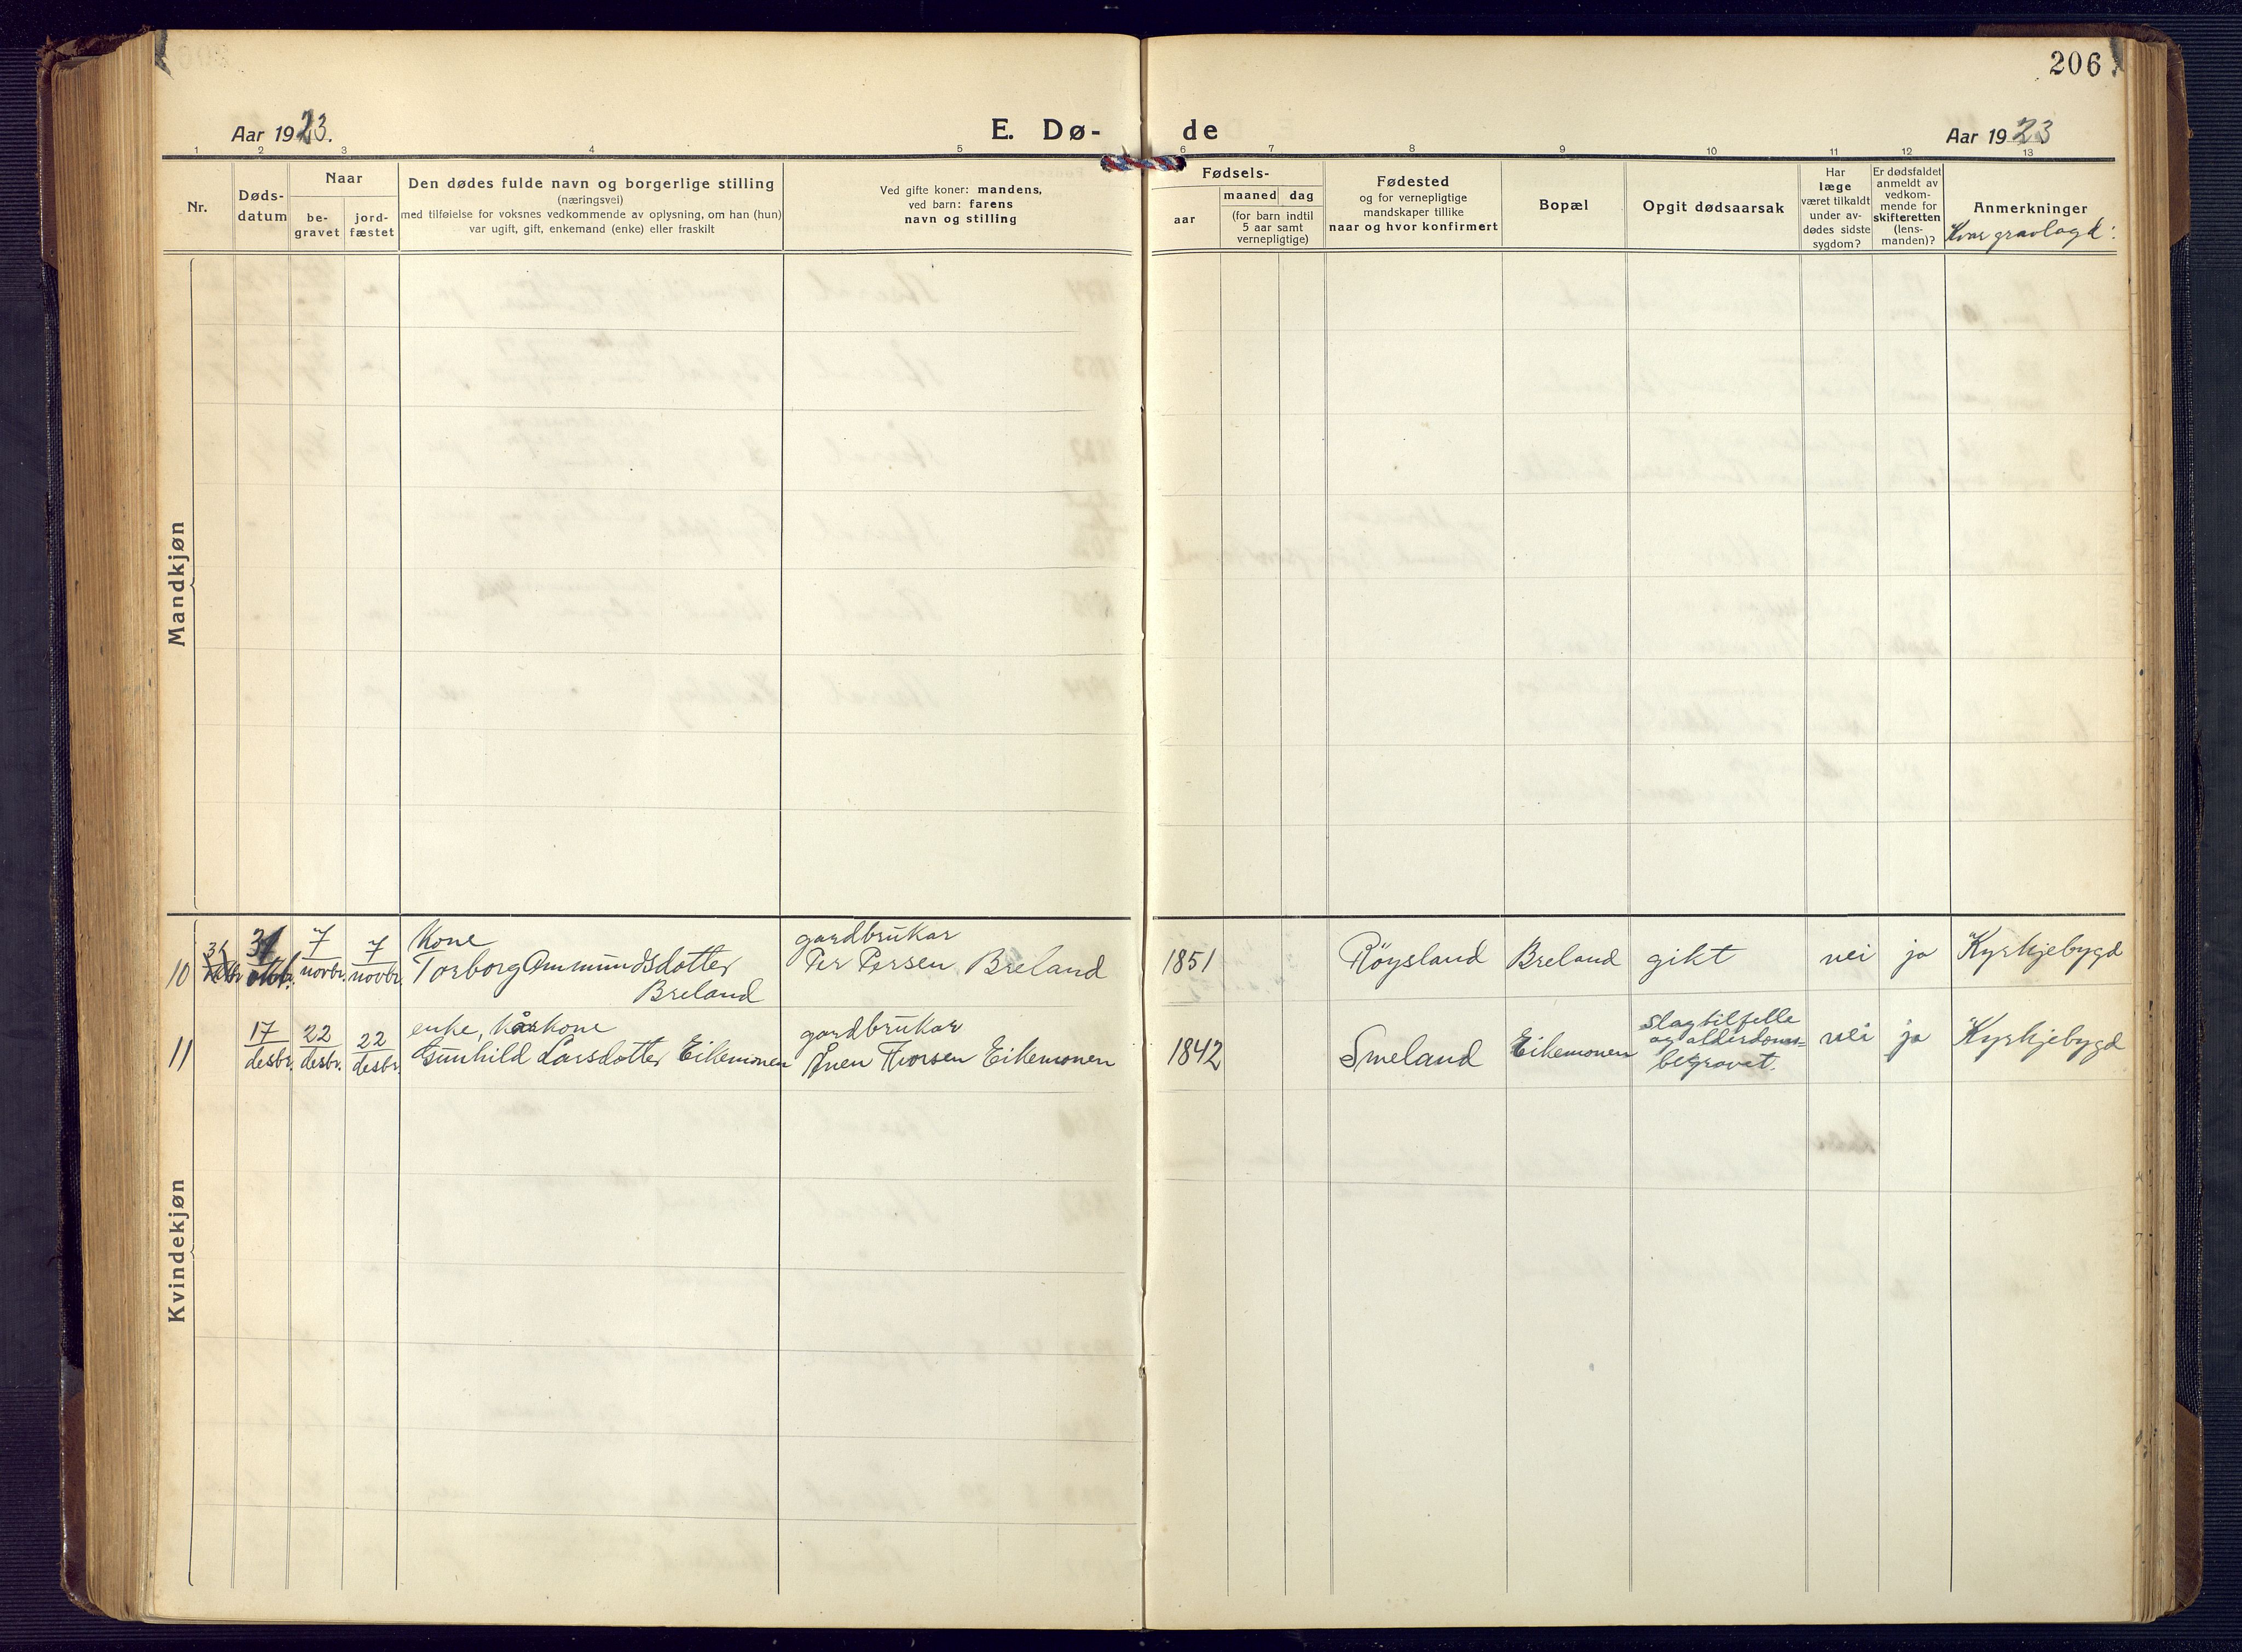 206
Aar 1923.
E. Dø-
de
Aar 1923
1 2 3 4 5 6 7 8 9 10 11 12 13
Nr.
Døds-
datum
Naar
be-
gravet
jord-
fæstet
Den dødes fulde navn og borgerlige stilling
(næringsvei)
med tilføielse for voksnes vedkommende av oplysning, om han (hun)
var ugift, gift, enkemand (enke) eller fraskilt
Ved gifte koner: mandens,
ved barn: farens
navn og stilling
Fødsels-
aar
maaned dag
(for barn indtil
5 aar samt
vernepligtige)
Fødested
og for vernepligtige
mandskaper tillike
naar og hvor konfirmert
Bopæl
Opgit dødsaarsak
Har
læge
været tilkaldt
under av-
dødes sidste
sygdom?
Er dødsfaldet
anmeldt av
vedkom-
mende for
skifteretten
(lens-
manden)?
Anmerkninger
Kvar gravlagd:
Mandkjøn
Kvindekjøn
10 31 oktbr. 7 novbr. 7 novbr.
Kone
Torborg Ommundsdotter
Breland
gardbrukar
Per Persen Breland
1851 Röysland Breland gikt nei ja Kyrkjebygd
11 17 desbr. 22 desbr. 22 desbr.
enke, kårkone
Gunhild Larsdotter Eikemonen
gardbrukar
Även Ivorsen Eikemonen
1842 Smeland Eikemonen
slagtilfelle
og alderdoms=
begravet.
nei ja Kyrkjebygd